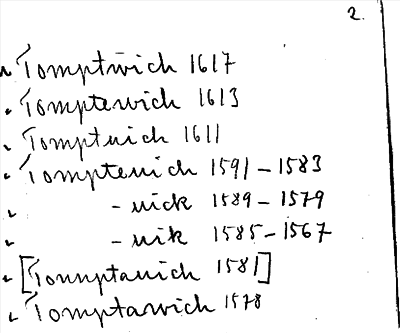 2.
Tomptwich 1617
Tomptewich 1613
Tomptuich 1611
Tompteuich 1591 – 1583
– uick 1589 – 1579
– uik 1585 – 1567
[Tonnptauich 1581]
Tomptawich 1578